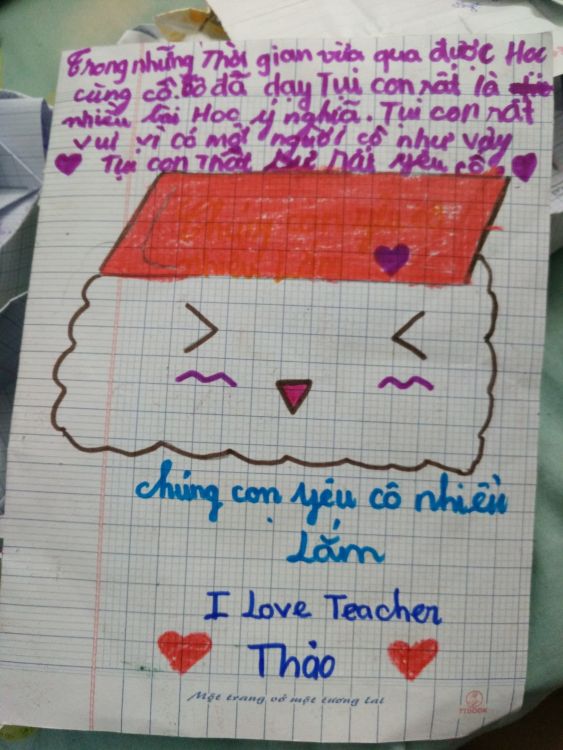 Trong những Thời gian vừa qua được Học
cùng cô. Cô đã dạy Tụi con rất là
nhiều bài Học ý nghĩa. Tụi con rất
vui vì có một người cô như vậy
Tụi con Thật sự rất yêu cô
Chúng con yêu cô
chúng con yêu cô nhiều
Lắm
I Love Teacher
Thảo
Một trang vở một tương lai
TTBOOK